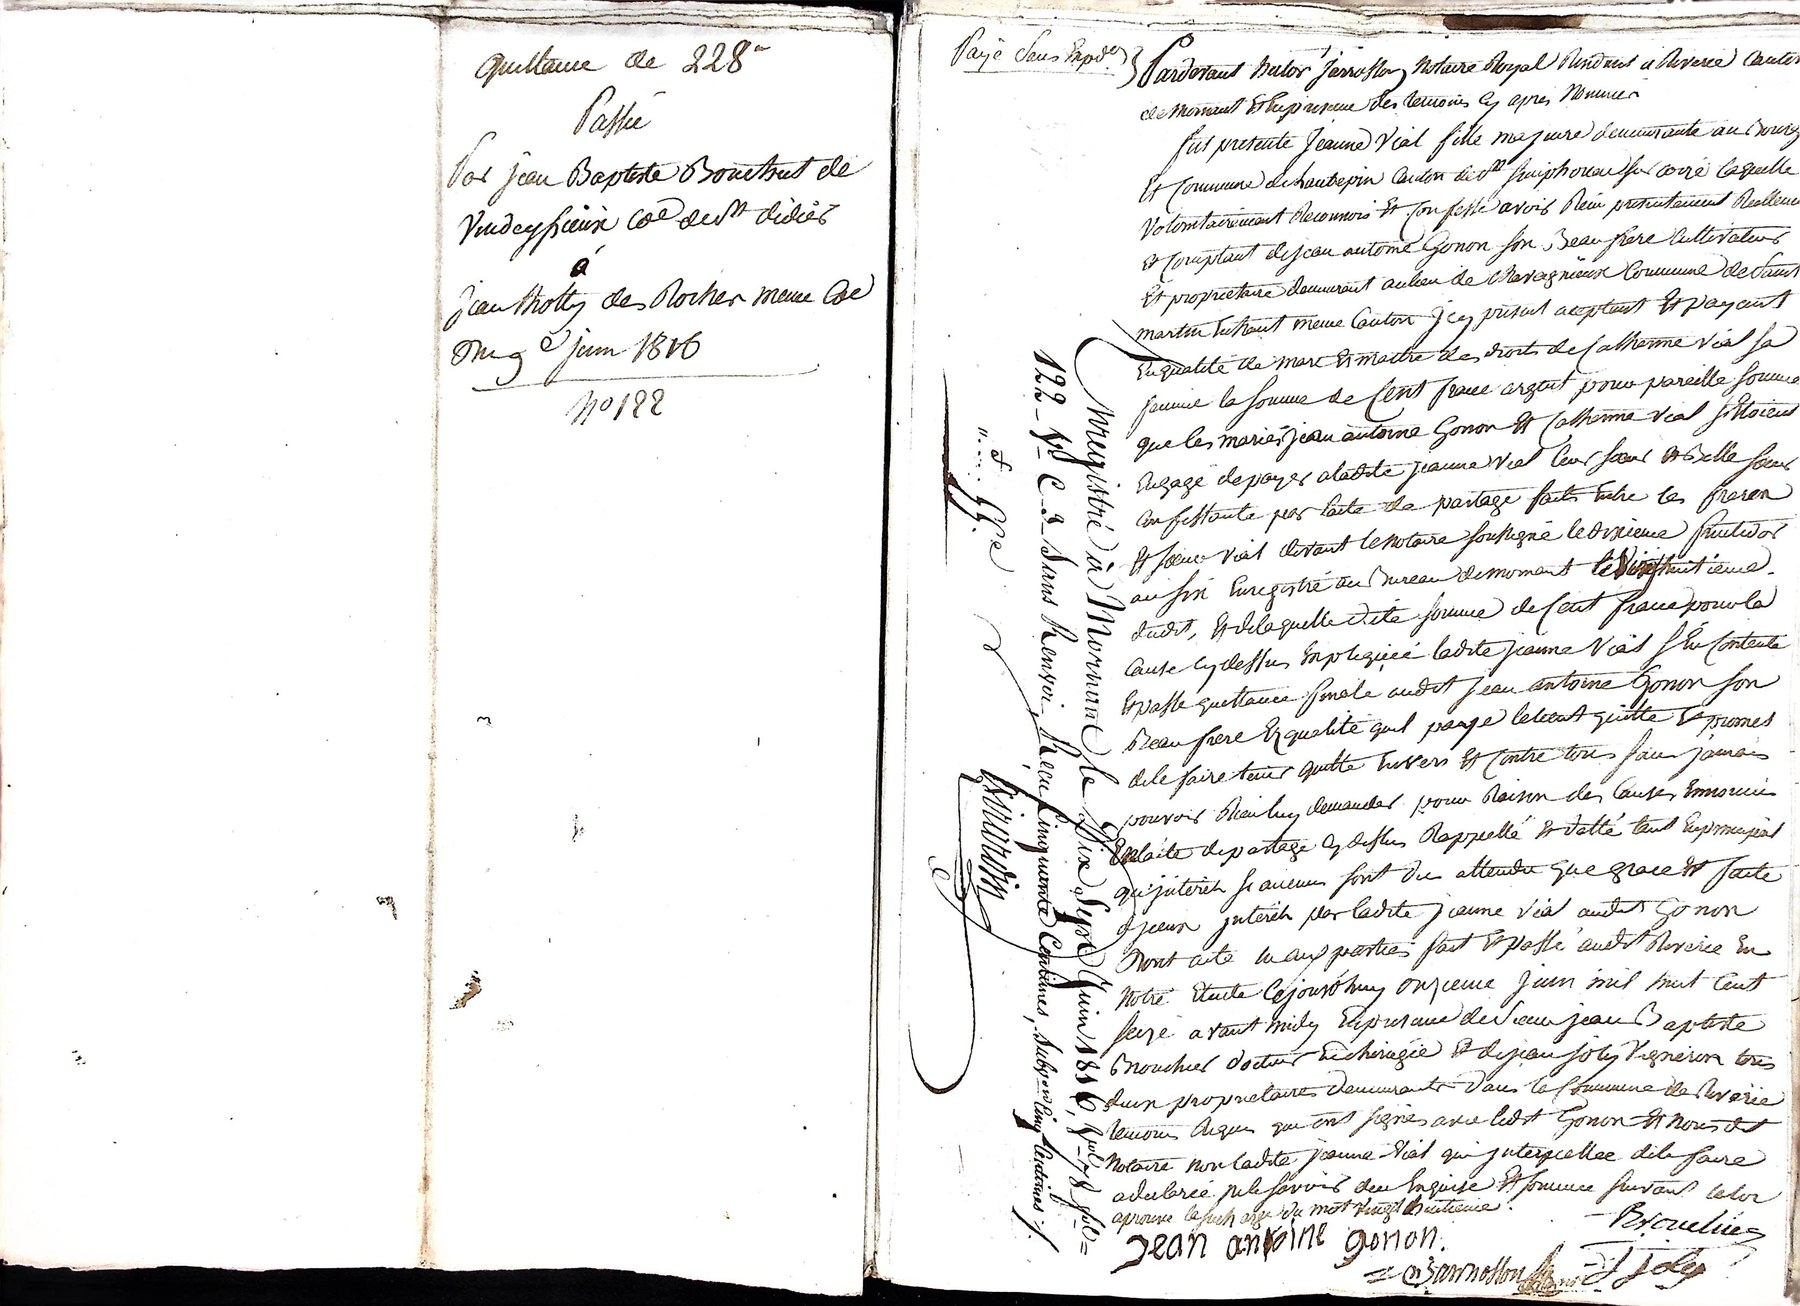 quittance de 228
Passée
Par jean Baptiste Bouchut de
Vindeyssieux coe de st didier
á
jean tholly des Rocher meme Coe
Du 9e juin 1816
No 122
Payé Sans Expdon
Pardevant Nator jarrosson Notaire Royal Residant à Riverie Canton
de Mornant Et En presence des temoins cy apres Nommés
fut presente Jeanne Vial fille majeure demeurante au Bourg
Et Commune de haute canton de st simphorien sur coise laquelle
Volontairement Reconnois Et Confesse avoir Recu presentement Reellement
Et Comptant de jean antoine Gonon son Beau frere Cultivateur
Et proprietaire demeurant au lieu de Commune de Saint
martin Enhaut meme Canton jcy présent aceptant Et payant
En qualité de mari Et maitre des droits de Catherine Vial sa
femme la somme de Cent franc argent pour pareille somme
que les mariés jean antoine Gonon Et Catherine Vial s'Etoient
Engagé de payer a ladite jeanne Vial leur sœur Et Belle sœur
Confessante par l'acte de partage fait Entre les freres
Et sœurs Vial devant le notaire soussigné le dixieme
an six Enregistré au Bureau de mornant le Vingt huitieme
dudit, Et de laquelle dite somme de Cent franc pour la
cause cy dessus Expliquée ladite jeanne Vial s'En Contente
Et passe quittance finale audit jean antoine Gonon son
Beau frere En qualité qu'il paye le tient quitte Et promet
de le faire tenir quitte Envers Et Contre tous sans jamais
pouvoir Rien luy demander pour Raison des Causes Ennoncées
En l'acte de partage cy dessus Rappellé Et datté tant En principal
qu'jnterets si aucuns sont dus attendu que grace Est faite
d'jceux jnterets par ladite jeanne Vial audit Gonon
Dont acte lu aux parties fait Et passé audit Riverie En
Notre Etude Cejourd'huy onzieme juin mil huit Cent
seize avant midy En presence de Sieur jean Baptiste
Brouchier docteur En chirugie Et de jean joly Vigneron tous
deux proprietaires demeurants dans la Commune de Riverie
temoins Requis qui ont signés avec ledit Gonon Et Nous dit
Notaire non ladite jeanne Vial qui jnterpellée de le faire
a declaré ne le savoir deu Enquise Et sommée suivant la loi
aprouve la surcharge du mot Vingt huitieme
Jean antoine gonon.
Brouchier
Jarrosson
J joly
Enregistré à Mornant le Dix Sept Juin 1816, vol. 78 fol.
122 Vo C 3 Sans Renvoi, Recu Cinquante Centimes, Subvon Cinq Centimes